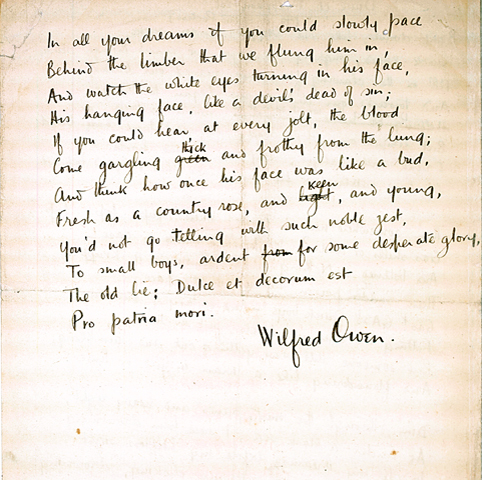 In all your dreams if you could slowly pace
Behind the limber that we flung him in,
And watch the white eyes turning in his face,
His hanging face, like a devil's dead of sin;
If you could hear, at every jolt, the blood
thick
Come gargling green and frothy from the lung;
And think how once his face was like a bud,
keen
Fresh as a country rose, and light, and young,
You'd not go telling with such noble zest,
To small boys, ardent from for some desperate glory,
The old lie; Dulce et decorum est
Pro patria mori.
Wilfred Owen.